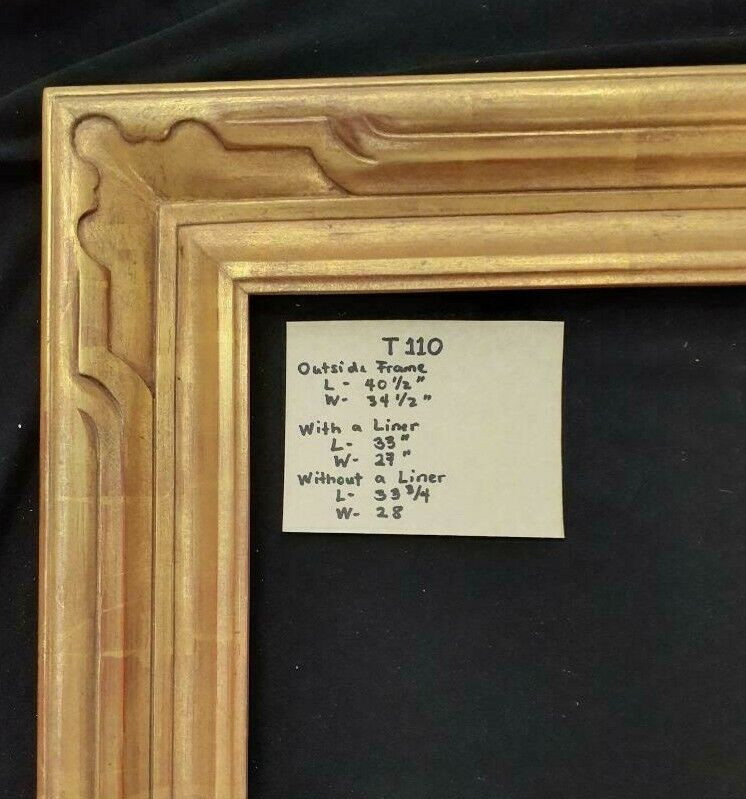 T110
Outside Frame
L - 40 1/2"
W- 34 1/2"
With a Liner
L- 33"
W- 27"
Without a Liner
L- 33 3/4
W- 28